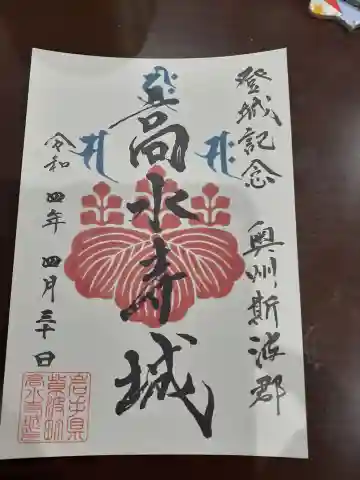 登城記念
奥州斯波郡
高水寺城
令和四年四月三十日
岩手県
紫波町